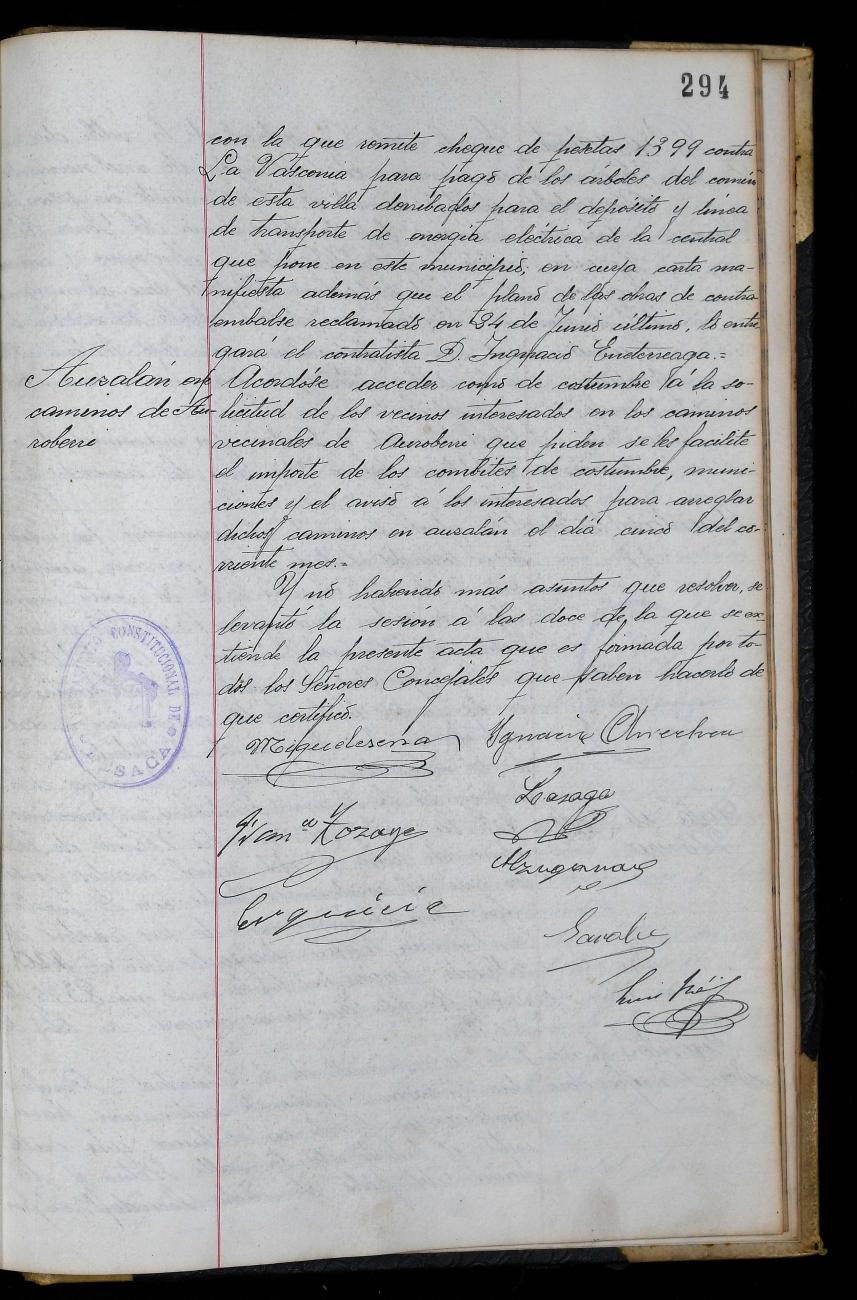 294
con la que remite cheque de pesetas 1399 contra
La Vasconia para pago de los arboles del común
de esta villa derribados para el depósito y línea
de transporte de energia electrica de la central
que pone en este municipio, en cuya carta ma-
nifiesta además que el plano de las obras de contra
embalse reclamado en 24 de Junio último, lo entre
gará el contratista D. Ingnacio
Auzalán en
caminos de Au-
roberri
Acordóse acceder como de costumbre á la so-
licitud de los vecinos interesados en los caminos
vecinales de Auroberri que piden se les facilite
el importe de los combites de costumbre, muni-
ciones y el aviso á los interesados para arreglar
dichos caminos en auzalán el día cinco del co-
rriente mes.=
Y no habiendo más asuntos que resolver, se
levantó la sesión á las doce de la que se ex-
tiende la presente acta que es formada por to-
dos los Señores Concejales que saben hacerlo de
que certifico.
CONSTITUCIONAL DE
LESACA
Migueleserena Ygnacio
Lasaga
Franco Zozaya
Alzuguaray
Luis